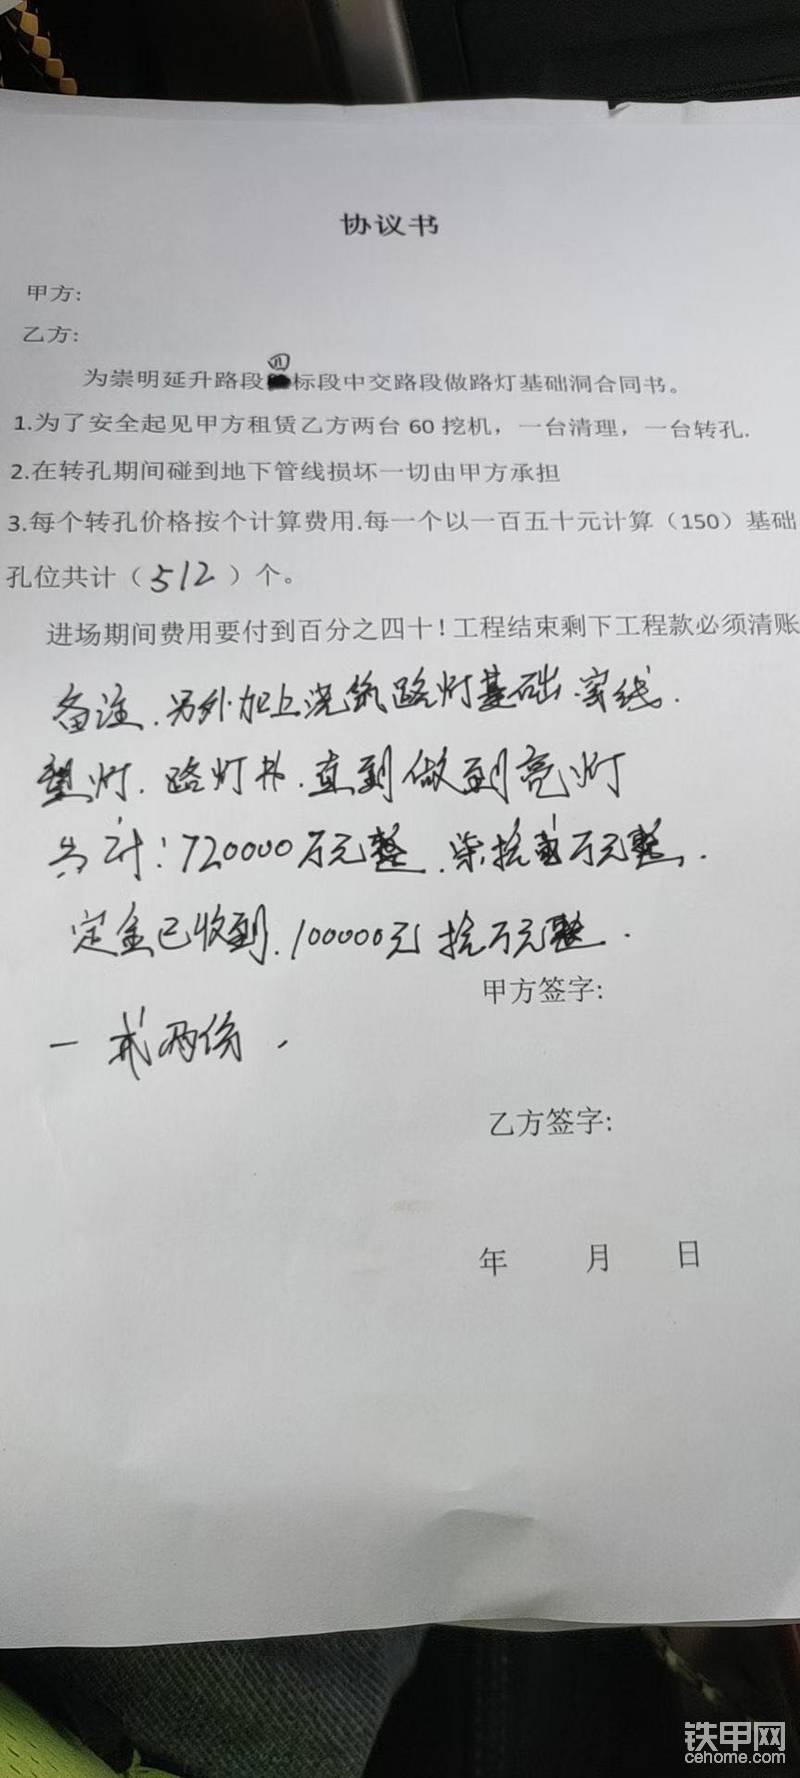 协议书
甲方:
乙方:
为崇明延升路段四标段中交路段做路灯基础洞合同书。
1.为了安全起见甲方租赁乙方两台 60 挖机，一台清理，一台转孔.
2.在转孔期间碰到地下管线损坏一切由甲方承担
3.每个转孔价格按个计算费用.每一个以一百五十元计算（150）基础
孔位共计（512）个。
进场期间费用要付到百分之四十！工程结束剩下工程款必须清账
备注.另外加上浇筑路灯基础.穿线.
路灯.直到做到亮灯
共计:720000万元整.柒拾贰万元整.
定金已收到.100000元拾万元整.
甲方签字:
一式两份.
乙方签字:
年 月 日
铁甲网
cehome.com